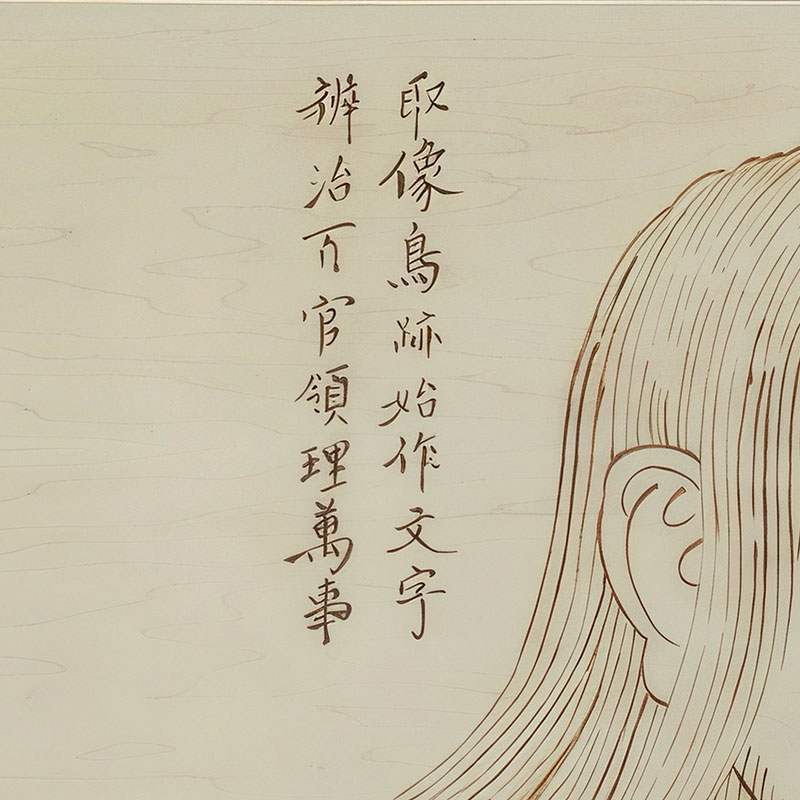 取像鳥跡始作文字
辨治百官領理萬事